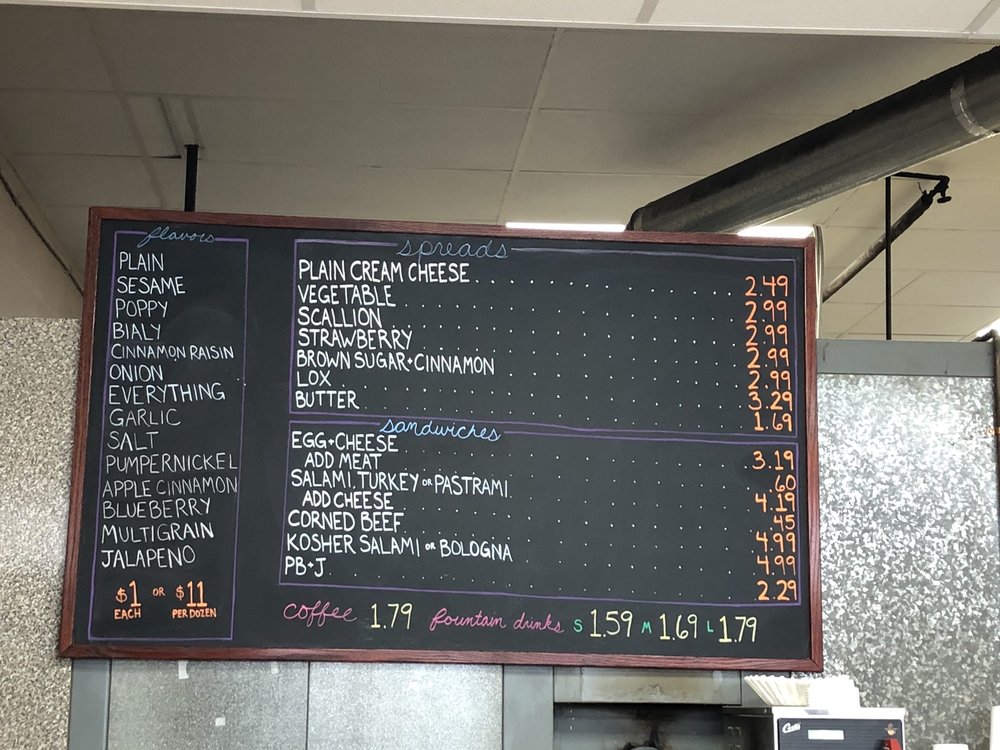 flavors
PLAIN
SESAME
POPPY
BIALY
CINNAMON RAISIN
ONION
EVERYTHING
GARLIC
SALT
PUMPERNICKEL
APPLE CINNAMON
BLUEBERRY
MULTIGRAIN
JALAPENO
$1 OR $11
EACH PER DOZEN
spreads
PLAIN CREAM CHEESE 2.49
VEGETABLE 2.99
SCALLION 2.99
STRAWBERRY 2.99
BROWN SUGAR+CINNAMON 2.99
LOX 3.29
BUTTER 1.69
sandwiches
EGG+CHEESE 3.19
ADD MEAT .60
SALAMI, TURKEY OR PASTRAMI 4.19
ADD CHEESE .45
CORNED BEEF 4.99
KOSHER SALAMI OR BOLOGNA 4.99
PB+J 2.29
coffee 1.79 fountain drinks S 1.59 M 1.69 L 1.79
Curtis